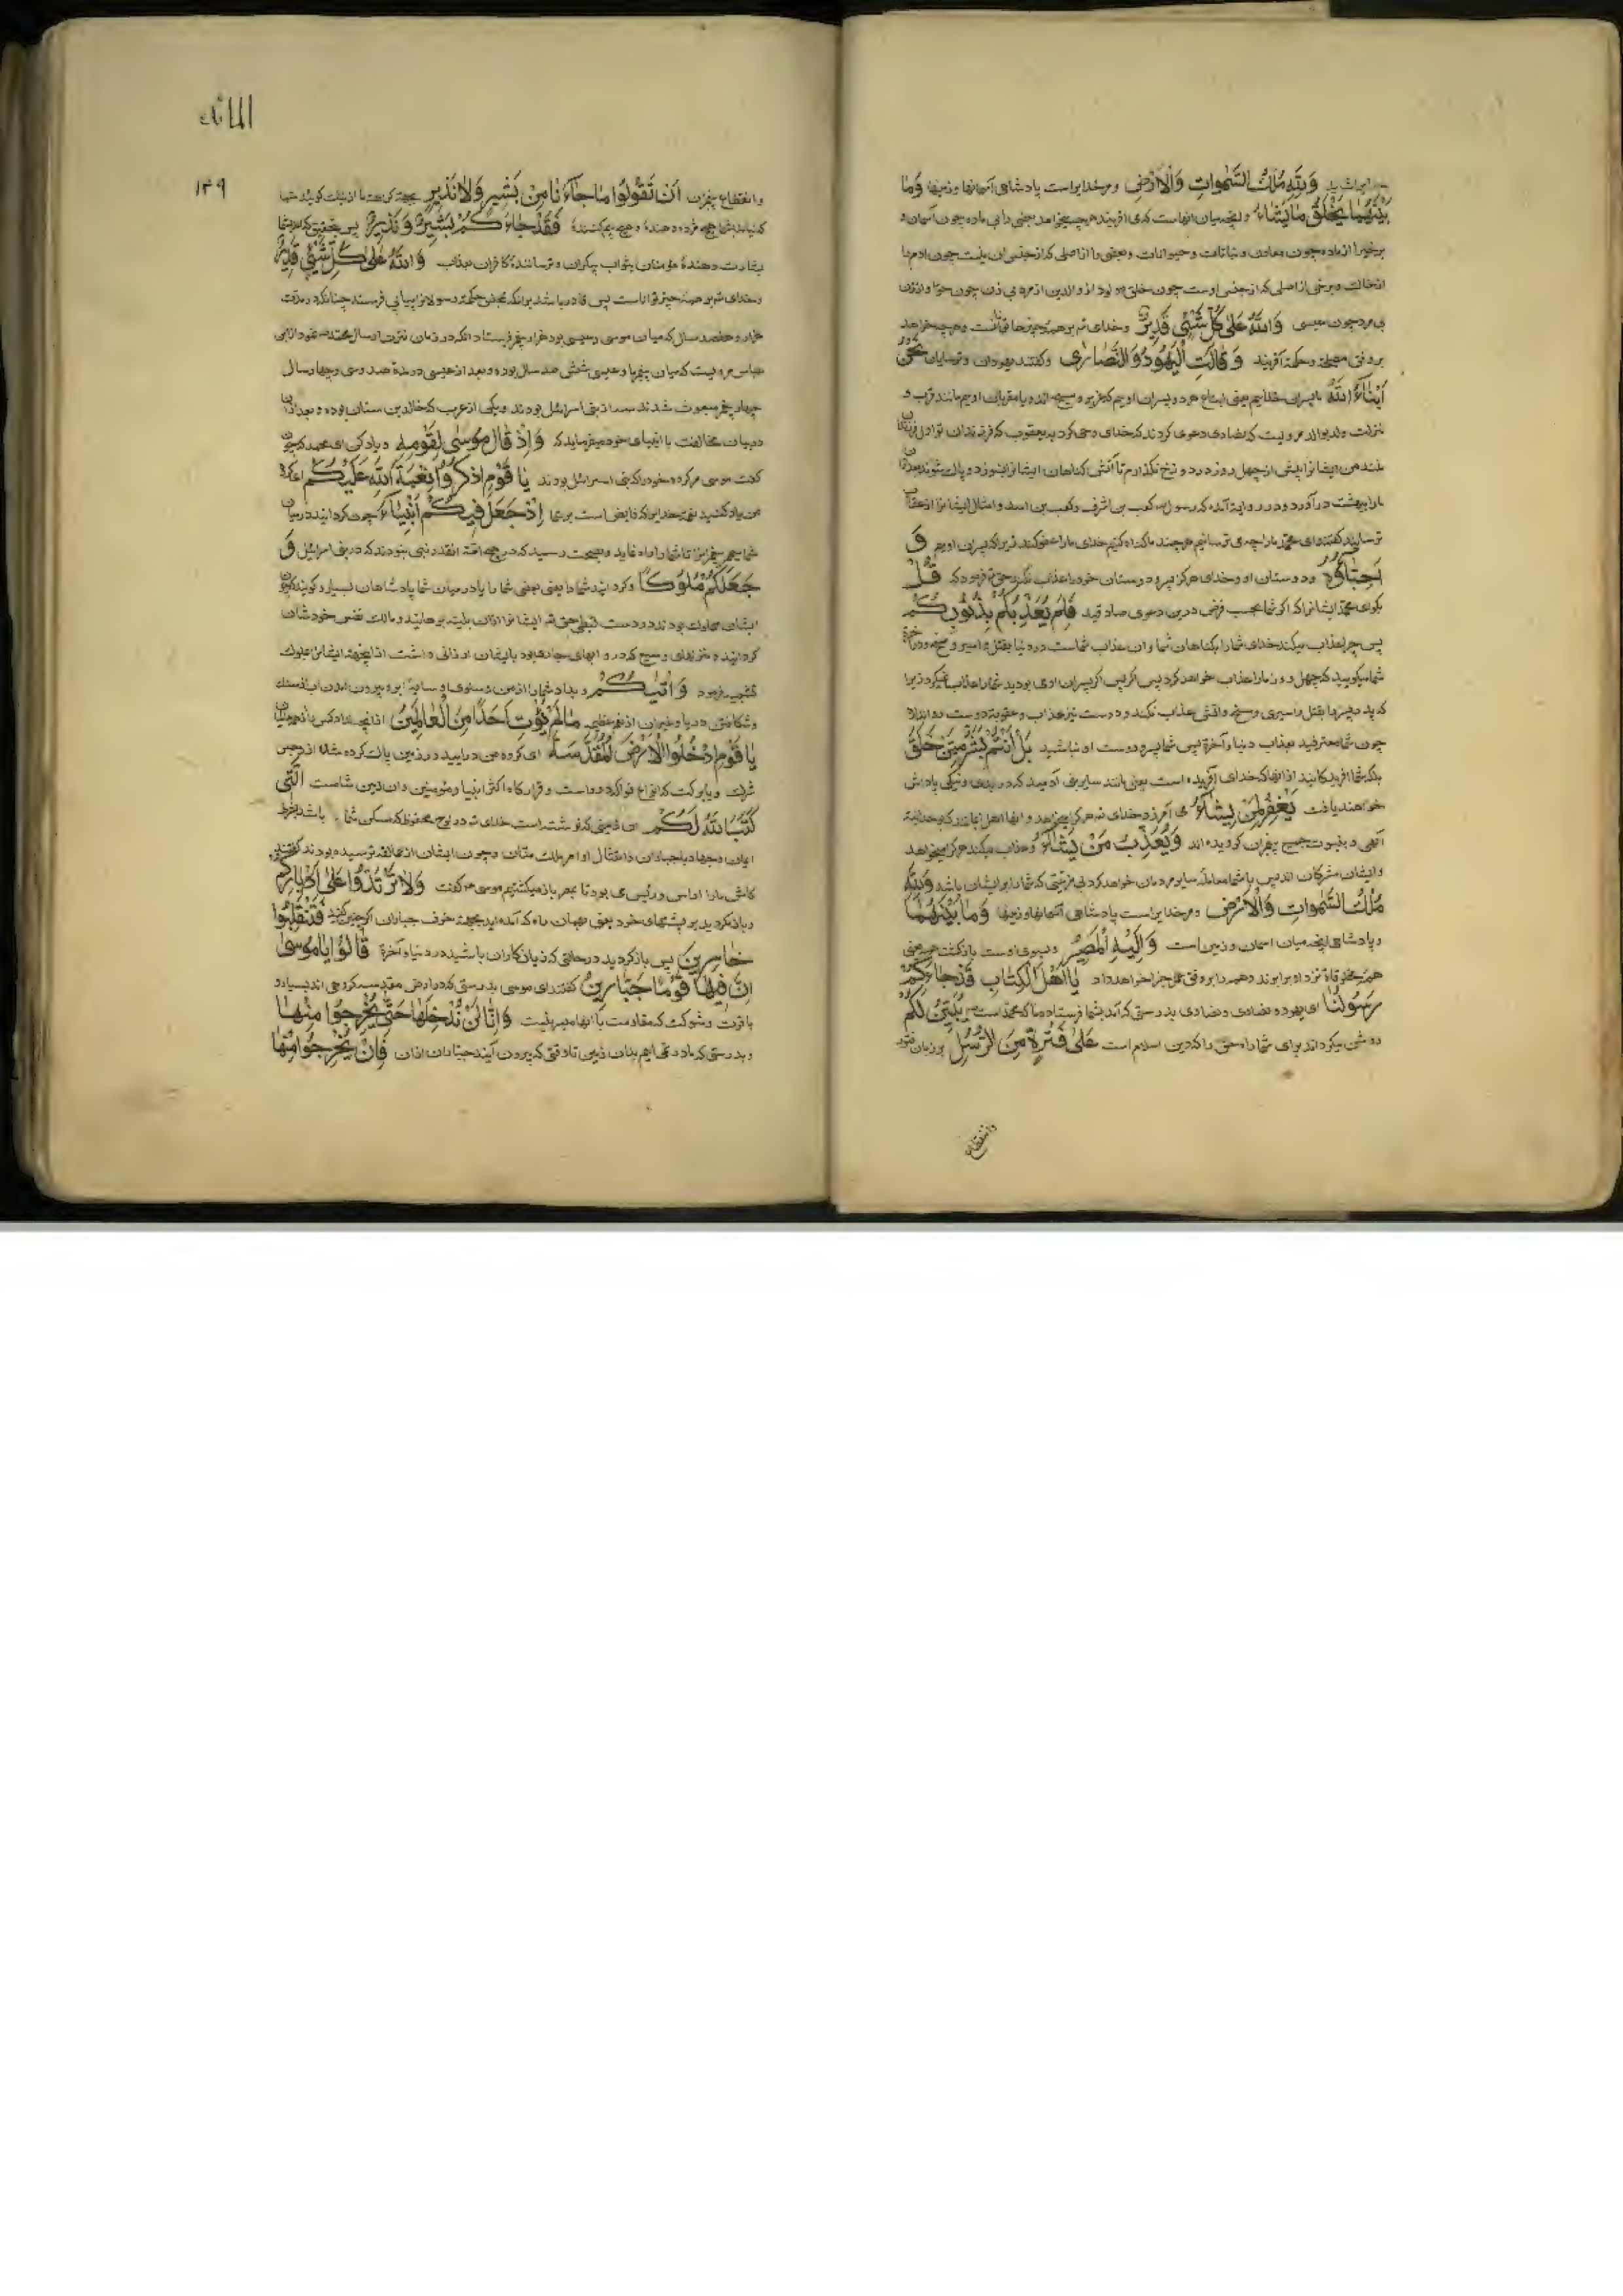 وَلِلَّهِ مُلْكُ السَّمٰوَاتِ وَالْاَرْضِ و مر خدایراست پادشاهی آسمانها و زمینها وَمَا
بَيْنَهُمَا يَخْلُقُ مَا يَشَاءُ و انچه میان انهاست می افریند هر چه میخواهد بعضی را بی ماده چون آسمان و
برخی را از ماده چون معادن و نباتات و حیوانات و بعضی را از اصلی که از جنس ان نیست چون ادم را
از خاک و برخی از اصلی که از جنس اوست چون خلق مولود از والدین از مرد بی زن چون حوا و از زن
بی مرد چون عیسی وَاللّٰهُ عَلٰى كُلِّ شَيْئٍ قَدِيرٌ و خدای تم بر همه چیزها تواناست و هر چه خواهد
بر وفق مصلحة و حکمة آفریند وَقَالَتِ الْيَهُودُ وَالنَّصَارٰى و گفتند یهودان و ترسایان نَحْنُ
اَبْنَاءُ اللّٰهِ ما پسران خدایم یعنی اتباع هر دو پسران اویم که عزیر و مسیح اند و یا مقربان اویم مانند قرب و
منزلت ولد بوالد مرویست که نصاری دعوی کردند که خدای وحی کرد به یعقوب که فرزندان تو اول
من ایشانرا پیش از چهل روز در دوزخ نگذارم تا آتش گناهان ایشانرا بسوزد و پاک شوند
ما را ببهشت در آورد و در روایة آمده که رسول ص کعب بن اشرف و کعب بن اسد و امثال ایشانرا از
ترسانید گفتند ای محمد ما را چه می ترسانی هر چند ما گناه کنیم خدای ما را عفو کند زیرا که پسران اویم وَ
اَحِبَّاؤُهُ و دوستان او و خدای هرگز پسر و دوستان خود را عذاب نکند حق تم فرمود که قُلْ
بگو ای محمد ایشانرا که اگر شما بحسب فرض درین دعوی صادقید فَلِمَ يُعَذِّبُكُمْ بِذُنُوبِكُمْ
پس چرا عذاب میکند خدای شما را بگناهان شما و ان عذاب شماست در دنیا بقتل و اسیر و مسخ و در
شما میگویید که چهل روز ما را عذاب خواهد کرد پس اگر پسران او می بودید شما را عذاب نمیکرد زیرا
که پدر پسر را بقتل و اسیری و مسخ و آتش عذاب نکند و دوست نیز عذاب و عقوبة دوست روا ندارد
چون شما معترفید بعذاب دنیا و آخرة پس شما پسر و دوست او نباشید بَلْ اَنْتُمْ بَشَرٌ مِمَّنْ خَلَقَ
بلکه شما افریدگانید از انها که خدای آفریده است یعنی مانند سایر بنی آدمید که در بدی و نیکی پاداش
خواهند یافت يَغْفِرُ لِمَنْ يَشَاءُ می آمرزد خدای تم هر کرا میخواهد و انها اهل ایمان
الهی و بنبوت جمیع پیغمبران گرویده اند وَيُعَذِّبُ مَنْ يَشَاءُ و عذاب میکند هر که را میخواهد
و ایشان مشرکان اند پس با شما معامله سایر مردمان خواهد کرد بی مزیتی که شما را بر ایشان باشد وَلِلَّهِ
مُلْكُ السَّمٰوَاتِ وَالْاَرْضِ و مر خدایراست پادشاهی آسمانها و زمینها وَمَا بَيْنَهُمَا
و پادشاهی انچه میان اسمان و زمین است وَاِلَيْهِ الْمَصِيرُ و بسوی اوست بازگشت
همه مخلوقات نزد او برابرند و همه را بر وفق عمل جزا خواهد داد يَا اَهْلَ الْكِتَابِ قَدْ جَاءَكُمْ
رَسُولُنَا ای یهود و نصاری بدرستی که آمد بشما فرستاده ما که محمد است يُبَيِّنُ لَكُمْ
روشن میگرداند برای شما راه حق را که دین اسلام است عَلٰى فَتْرَةٍ مِنَ الرُّسُلِ بر زمان
وانقطاع
المائده
۱۳۹
وانقطاع پیغمبران اَنْ تَقُولُوا مَا جَاءَنَا مِنْ بَشِيرٍ وَلَا نَذِيرٍ
که نیامد بشما هیچ مژده دهنده و هیچ بیم کننده فَقَدْ جَاءَكُمْ بَشِيرٌ وَنَذِيرٌ پس بتحقیق که آمد بشما
بشارت دهندهٔ مؤمنان بثواب بیکران و ترسانندهٔ کافران بعذاب وَاللّٰهُ عَلٰى كُلِّ شَيْئٍ قَدِيرٌ
و خدای تم بر همه چیز تواناست پس قادر باشد برانکه بمحض حکمة رسولانرا پیاپی فرستد چنانکه در مدت
هزار و هفصد سال که میان موسی و عیسی بود هزار پیغمبر فرستاد
عباس مرویست که میان پیغمبر ما و عیسی شش صد سال بوده و بعد از عیسی در مدة صد و سی و چهار سال
چهار پیغمبر مبعوث شدند سه از بنی اسرائیل بودند و یکی از عرب که خالد بن سنان بوده و بعد ازان
در بیان مخالفت با انبیای خود میفرماید که وَاِذْ قَالَ مُوسٰى لِقَوْمِهِ و یاد کن ای محمد که چون
گفت موسی مر گروه خود را که بنی اسرائیل بودند يَا قَوْمِ اذْكُرُوا نِعْمَةَ اللّٰهِ عَلَيْكُمْ ای گروه
من یاد کنید نعمة خدایرا که فایض است بر شما اِذْ جَعَلَ فِيكُمْ اَنْبِيَاءَ که چون گردانید در میان
شما پیغمبرانرا تا شما را راه نماید و بصحت رسید که در هیچ امة انقدر نبی نبودند که در بنی اسرائیل وَ
جَعَلَكُمْ مُلُوكًا و گردانید شما را یعنی بعضی شما را یا در میان شما پادشاهان بسیار و گویند که چون
ایشان مملوک بودند در دست قبطی حق تم ایشانرا ازان بلیه برهانید و مالک نفس خودشان
گردانید و منزلهای وسیع که در او ابهای جاری بود بایشان ارزانی داشت ازینجهة ایشانرا بملوک
تشبیه فرمود وَاٰتٰيكُمْ و بداد شما را از من و سلوی و سایهٔ ابر و بیرون امدن اب از سنگ
و شکافتن دریا و غیران از نعم عظیمه مَا لَمْ يُؤْتِ اَحَدًا مِنَ الْعَالَمِينَ انچه نداد کس را از عالمیان
يَا قَوْمِ ادْخُلُوا الْاَرْضَ الْمُقَدَّسَةَ ای گروه من درایید در زمین پاک کرده شده از رجس
شرک و یا برکت که انواع فواکه دروست و قرارگاه اکثر انبیا و مؤمنین و ان زمین شامست الَّتِى
كَتَبَ اللّٰهُ لَكُمْ ان زمینی که نوشته است خدای تم در لوح محفوظ که مسکن شما باشد بشرط
ایمان و جهاد با جباران و امتثال اوامر ملک منان و چون ایشان از عمالقه ترسیده بودند گفتند
کاش ما را رئیس می بود تا بمصر باز میگشتیم موسی گفت وَلَا تَرْتَدُّوا عَلٰى اَدْبَارِكُمْ
و باز مگردید بر پشتهای خود یعنی بهمان راه که آمده اید بجهة خوف جباران اگر چنین کنید فَتَنْقَلِبُوا
خَاسِرِينَ پس بازگردید در حالتی که زیان کاران باشید در دنیا و آخرة قَالُوا يَا مُوسٰى
اِنَّ فِيهَا قَوْمًا جَبَّارِينَ گفتند ای موسی بدرستی که در ارض مقدسه گروهی اند بسیار
با قوت و شوکت که مقاومت با انها میسر نیست وَاِنَّا لَنْ نَدْخُلَهَا حَتّٰى يَخْرُجُوا مِنْهَا
و بدرستی که ما در نمی اییم بدان زمین تا وقتی که بیرون آیند جباران ازان فَاِنْ يَخْرُجُوا مِنْهَا